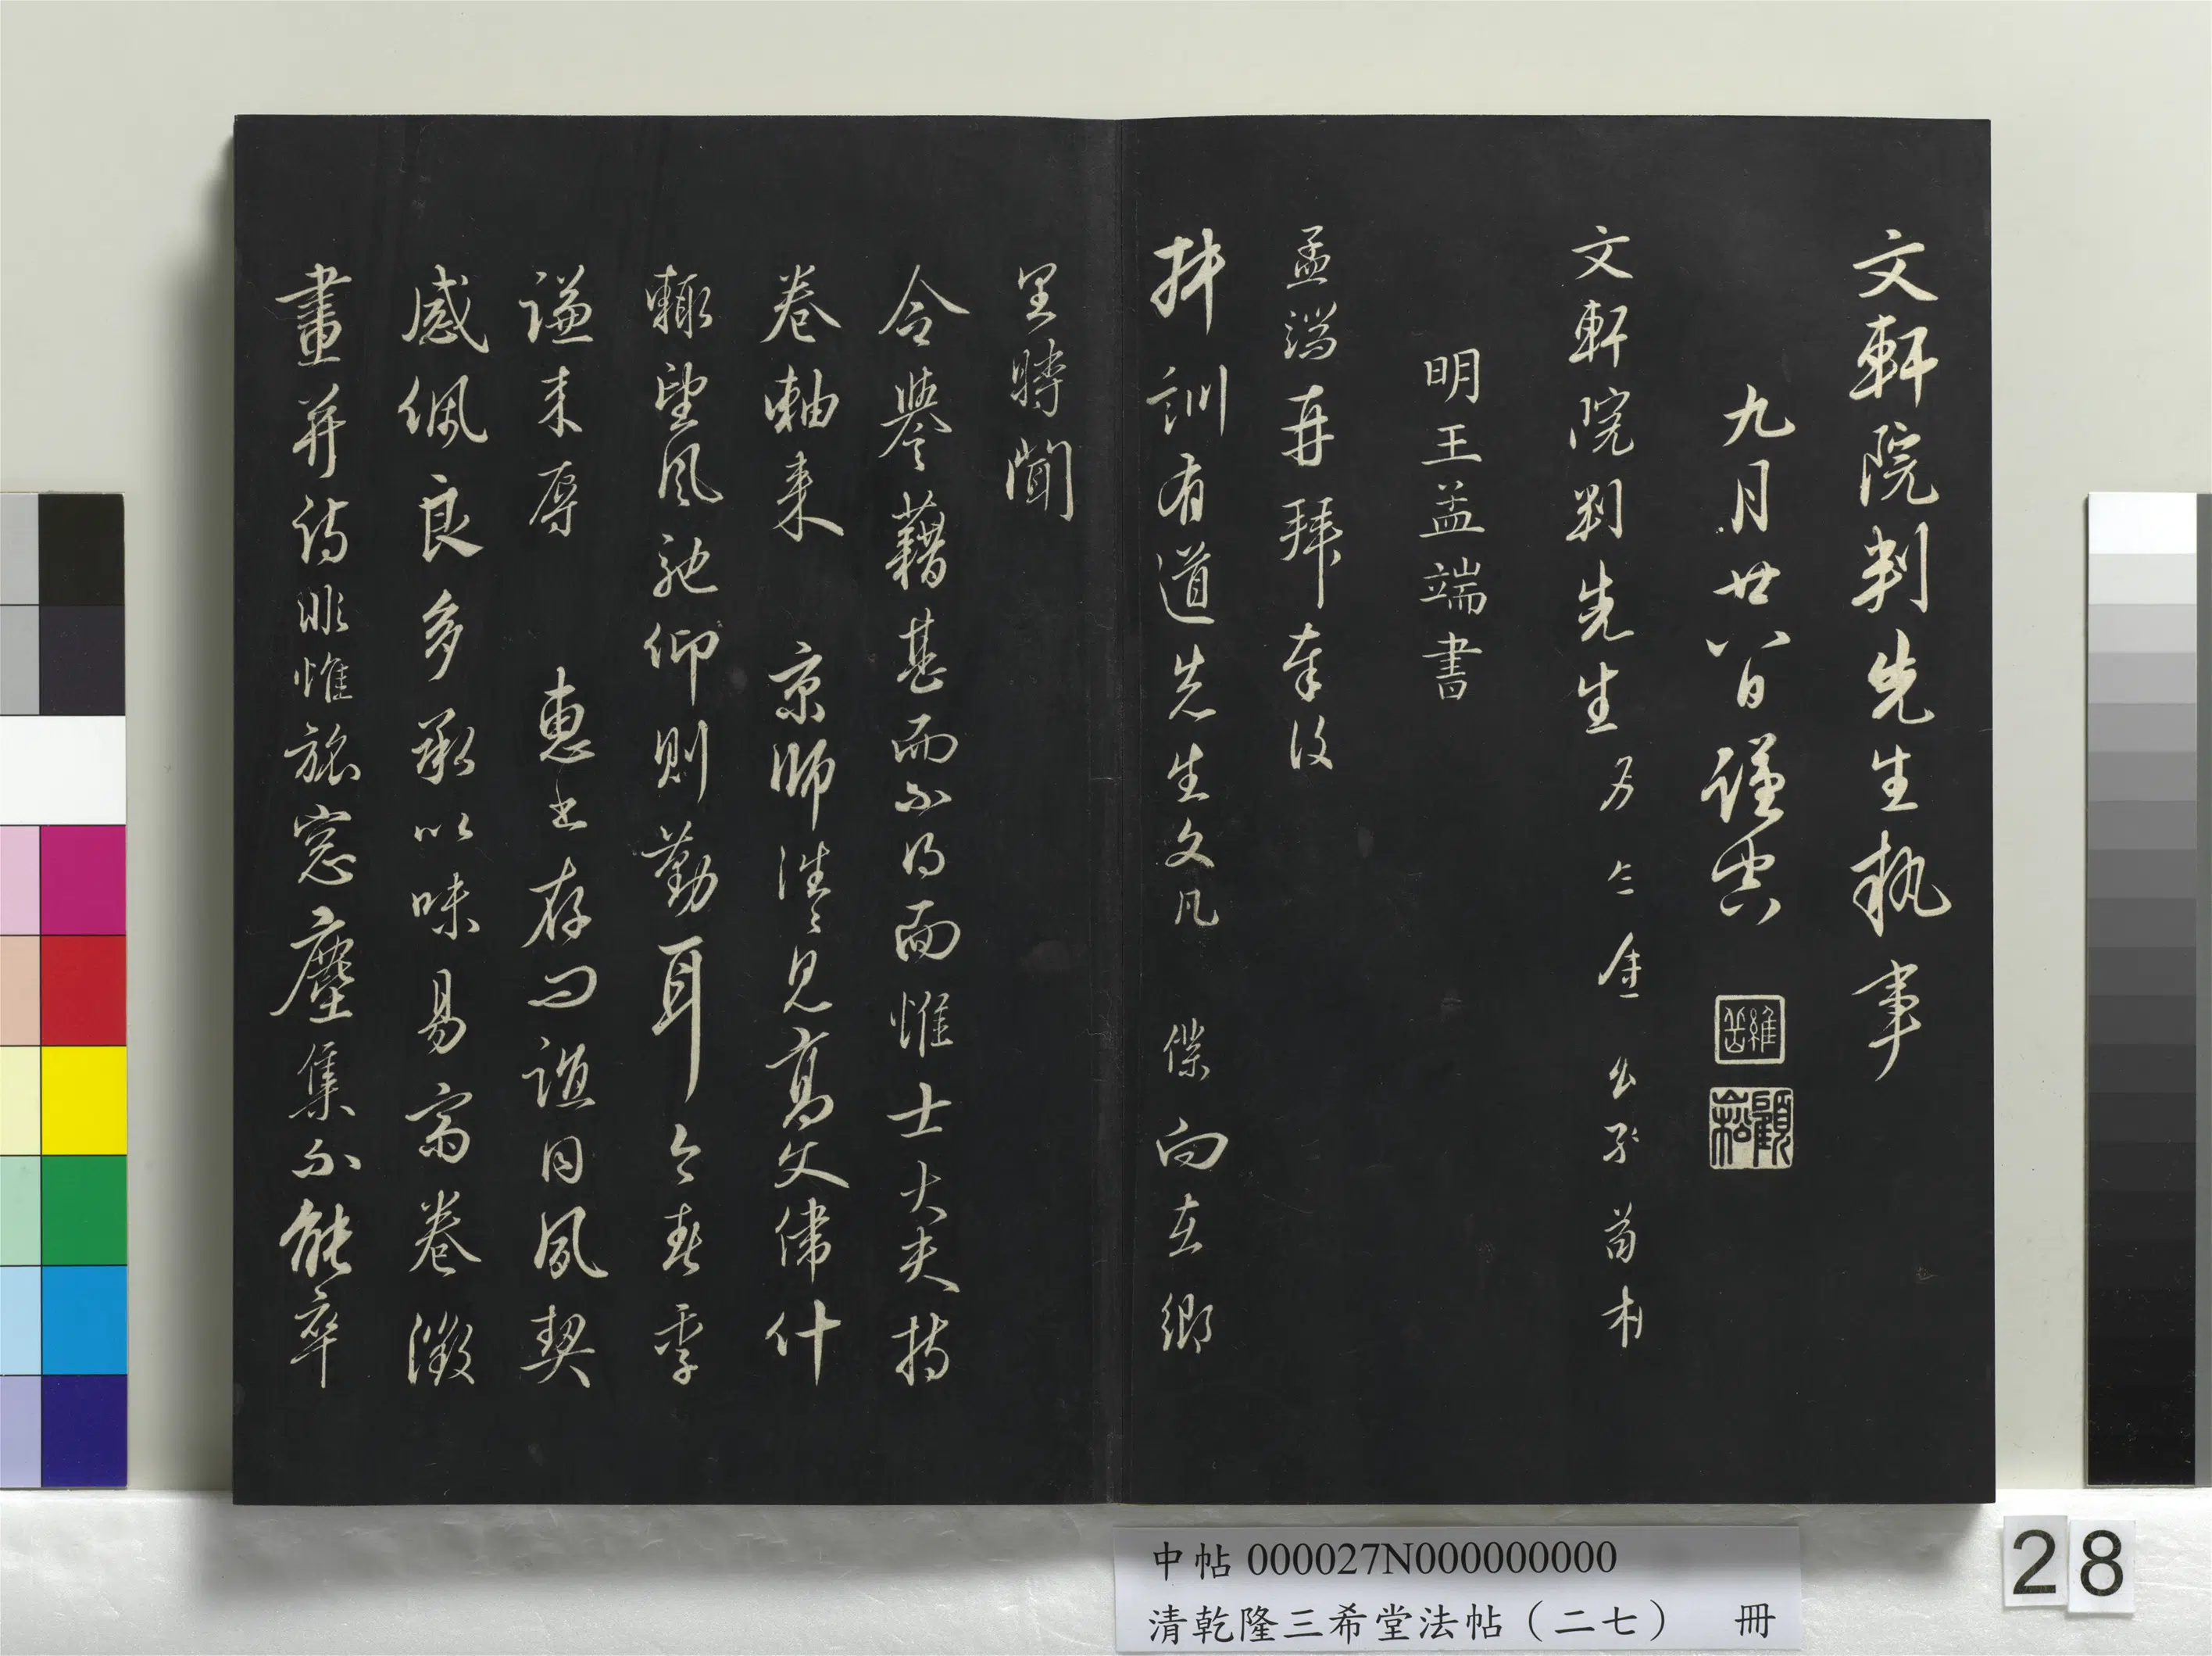 文軒院判先生執事
九月廿八日謹空
維岳
文軒院判先生
明王孟端書
孟端再拜奉復
拜訓有道先生文几 僕向在鄉
里時聞
令譽藉甚而不得面惟士大夫持
卷軸來 京師淮見高文偉什
輒望風馳仰則勤耳今春季
謙來辱 惠書存問誼同夙契
感佩良多承以味易齋卷徵
畫並詩眎惟旅窓塵集不能卒
中帖 000027N000000000
清乾隆三希堂法帖（二七） 冊
28